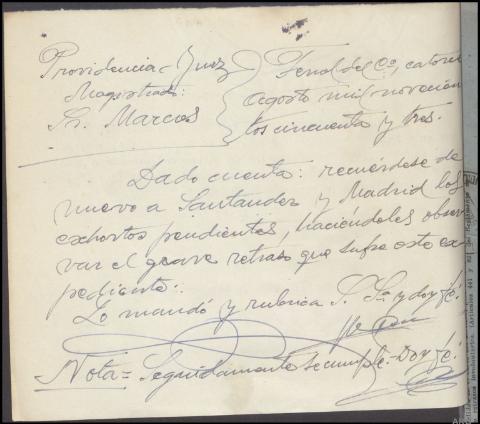 Providencia = Juez
Magistrado:
Sr. Marcos
Ferrol del Cº, catorce
agosto mil novecien
tos cincuenta y tres.
Dado cuenta: recuérdese de
nuevo a Santander y Madrid los
exhortos pendientes, haciéndoles obser
var el grave retraso que sufre este ex
pediente.:
Lo mandó y rubrica S. Sª. y doy fé.
Nota = Seguidamente se cumple. Doy fé.